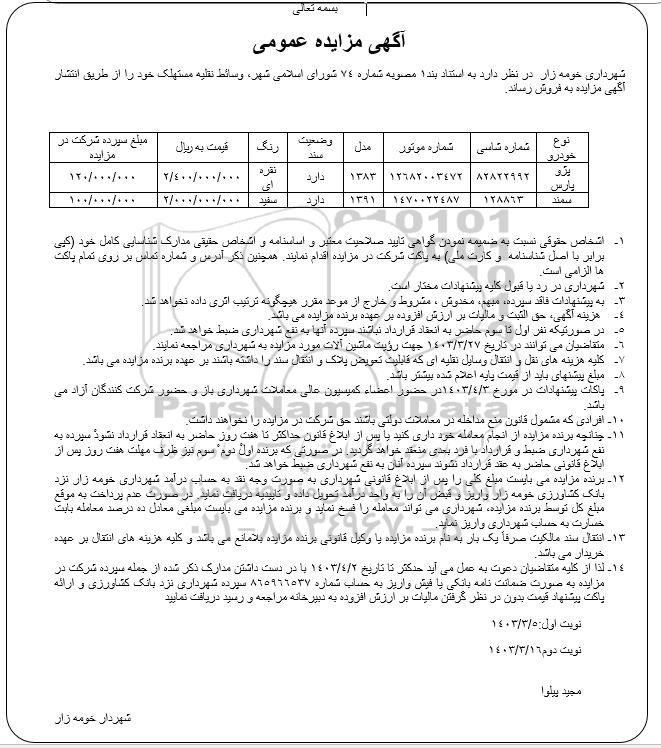 بسمه تعالی
آگهی مزایده عمومی
شهرداری خومه زار در نظر دارد به استناد بند۱ مصوبه شماره ۷۴ شورای اسلامی شهر، وسائط نقلیه مستهلک خود را از طریق انتشار
آگهی مزایده به فروش رساند.
نوع خودرو شماره شاسی شماره موتور مدل وضعیت سند رنگ قیمت به ریال مبلغ سپرده شرکت در مزایده
پژو پارس ۸۲۸۲۲۹۹۲ ۱۲۶۸۲۰۰۳۴۷۲ ۱۳۸۳ دارد نقره ای ۲/۴۰۰/۰۰۰/۰۰۰ ۱۲۰/۰۰۰/۰۰۰
سمند ۱۲۸۸۶۳ ۱۴۷۰۰۲۲۴۸۷ ۱۳۹۱ دارد سفید ۲/۰۰۰/۰۰۰/۰۰۰ ۱۰۰/۰۰۰/۰۰۰
۱- اشخاص حقوقی نسبت به ضمیمه نمودن گواهی تایید صلاحیت معتبر و اساسنامه و اشخاص حقیقی مدارک شناسایی کامل خود (کپی
برابر با اصل شناسنامه و کارت ملی) به پاکت شرکت در مزایده اقدام نمایند. همچنین ذکر آدرس و شماره تماس بر روی تمام پاکت
ها الزامی است.
۲- شهرداری در رد یا قبول کلیه پیشنهادات مختار است.
۳- به پیشنهادات فاقد سپرده، مبهم، مخدوش ، مشروط و خارج از موعد مقرر هیچگونه ترتیب اثری داده نخواهد شد.
۴- هزینه آگهی، حق الثبت و مالیات بر ارزش افزوده بر عهده برنده مزایده می باشد.
۵- در صورتیکه نفر اول تا سوم حاضر به انعقاد قرارداد نباشند سپرده آنها به نفع شهرداری ضبط خواهد شد.
۶- متقاضیان می توانند در تاریخ ۱۴۰۳/۳/۲۷ جهت رؤیت ماشین آلات مورد مزایده به شهرداری مراجعه نمایند.
۷- کلیه هزینه های نقل و انتقال وسایل نقلیه ای که قابلیت تعویض پلاک و انتقال سند را داشته باشند بر عهده برنده مزایده می باشد.
۸- مبلغ پیشنهای باید از قیمت پایه اعلام شده بیشتر باشد.
۹- پاکات پیشنهادات در مورخ ۱۴۰۳/۴/۳در حضور اعضاء کمیسیون عالی معاملات شهرداری باز و حضور شرکت کنندگان آزاد می
باشد.
۱۰- افرادی که مشمول قانون منع مداخله در معاملات دولتی باشند حق شرکت در مزایده را نخواهند داشت.
۱۱- چنانچه برنده مزایده از انجام معامله خود داری کنید یا پس از ابلاغ قانون حداکثر تا هفت روز حاضر به انعقاد قرارداد نشود سپرده به
نفع شهرداری ضبط و قرارداد با فرد بعدی منعقد خواهد گردید. در صورتی که برنده اول دوم سوم نیز ظرف مهلت هفت روز پس از
ابلاغ قانونی حاضر به عقد قرارداد نشوند سپرده آنان به نفع شهرداری ضبط خواهد شد.
۱۲- برنده مزایده می بایست مبلغ کلی را پس از ابلاغ قانونی شهرداری به صورت وجه نقد به حساب درآمد شهرداری خومه زار نزد
بانک کشاورزی خومه زار واریز و قبض آن را به واحد درآمد تحویل داده و تاییدیه دریافت نماید. در صورت عدم پرداخت به موقع
مبلغ کل توسط برنده مزایده، شهرداری می تواند معامله را فسخ نماید و برنده مزایده می بایست مبلغی معادل ده درصد معامله بابت
خسارت به حساب شهرداری واریز نماید.
۱۳- انتقال سند مالکیت صرفاً یک بار به نام برنده مزایده یا وکیل قانونی برنده مزایده بلامانع می باشد و کلیه هزینه های انتقال بر عهده
خریدار می باشد.
۱۴- لذا از کلیه متقاضیان دعوت به عمل می آید حداکثر تا تاریخ ۱۴۰۳/۴/۲ با در دست داشتن مدارک ذکر شده از جمله سپرده شرکت در
مزایده به صورت ضمانت نامه بانکی یا فیش واریز به حساب شماره ۸۶۵۹۶۶۵۳۷ سپرده شهرداری نزد بانک کشاورزی و ارائه
پاکت پیشنهاد قیمت بدون در نظر گرفتن مالیات بر ارزش افزوده به دبیرخانه مراجعه و رسید دریافت نمایید
نوبت اول:۱۴۰۳/۳/۵
نوبت دوم۱۴۰۳/۳/۱۶
مجید پیلوا
شهردار خومه زار
ParsNamadData